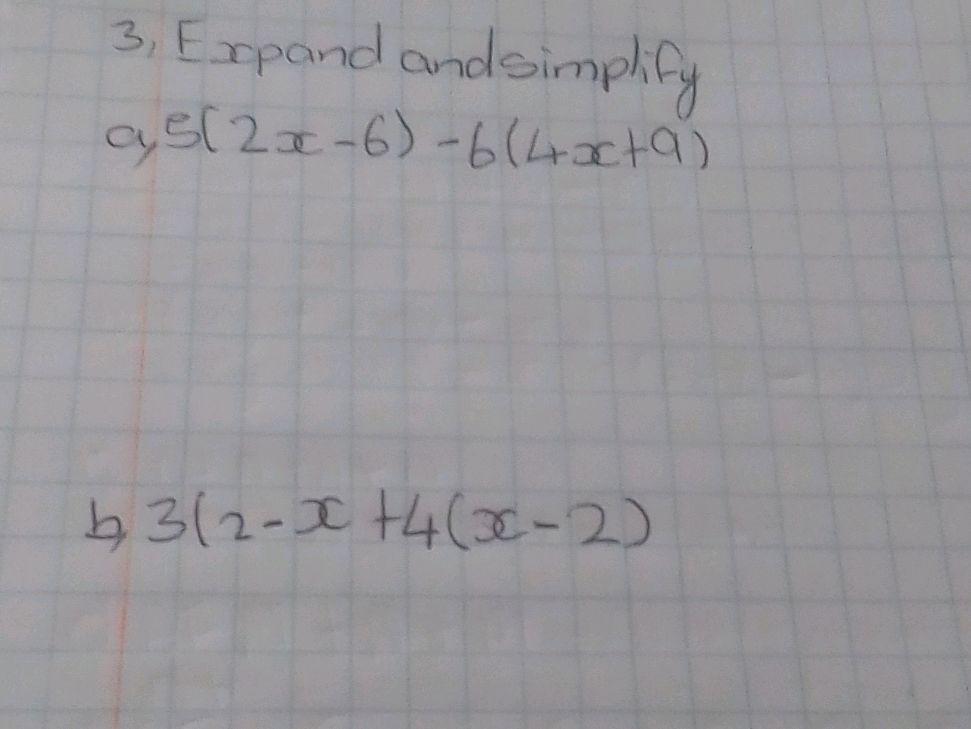 3, Expand and simplify
a, 5(2x-6) -6(4x+9)
b, 3(2-x +4(x-2)